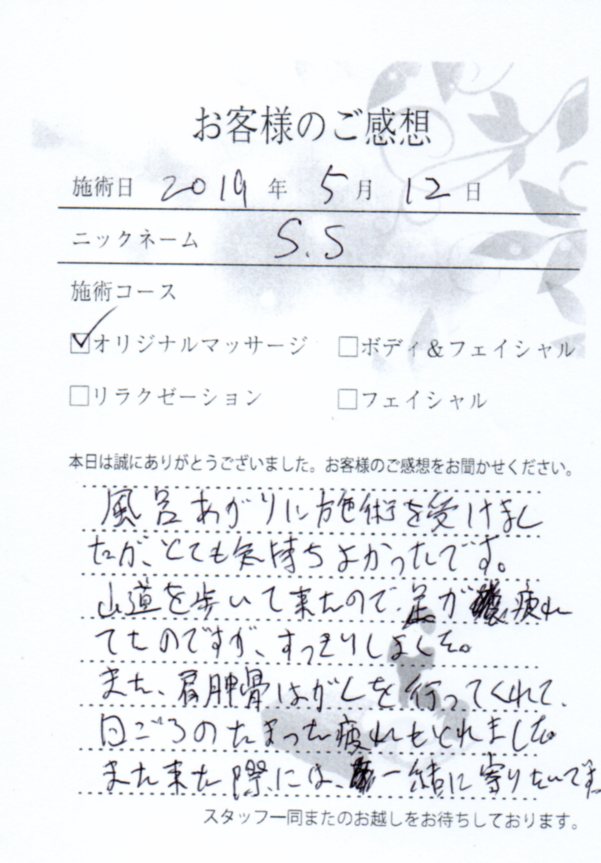 お客様のご感想
施術日 2019 年 5 月 12 日
ニックネーム S.S
施術コース
☑オリジナルマッサージ □ボディ&フェイシャル
□リラクゼーション □フェイシャル
本日は誠にありがとうございました。お客様のご感想をお聞かせください。
風呂あがりに施術を受けまし
たが、とても気持ちよかったです。
山道を歩いて来たので、足が疲れ
てたのですが、すっきりしました。
また、肩胛骨はがしを行ってくれて、
日ごろのたまった疲れもとれました。
また来た際には、一緒に寄りたいです。
スタッフ一同またのお越しをお待ちしております。